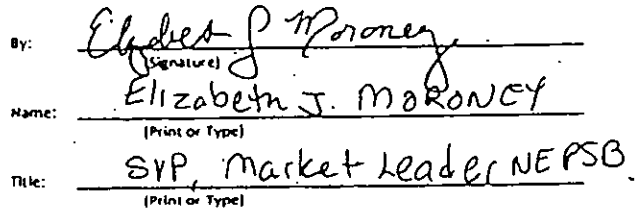 By: Elizabeth J Moroney
(Signature)
Name: Elizabeth J. MORONEY
(Print or Type)
Title: SVP, Market Leader NEPSB.
(Print or Type)